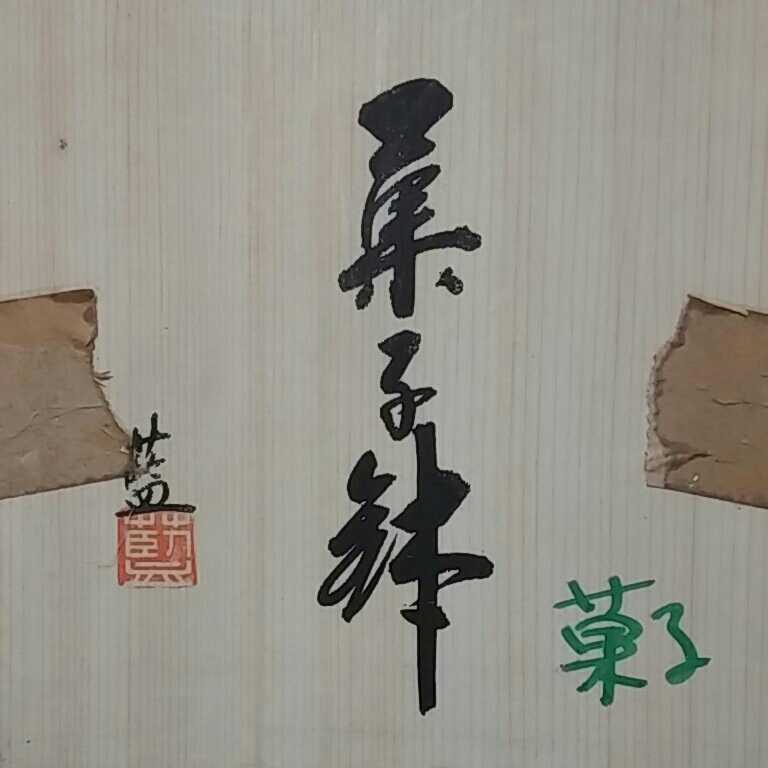 菓子鉢
藍
菓子